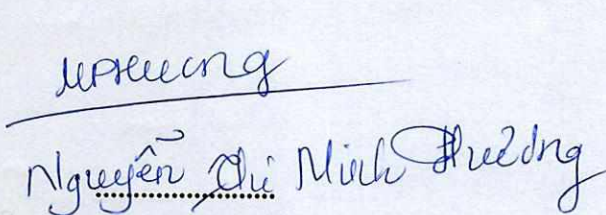 MPhương
Nguyễn Thị Minh Phương